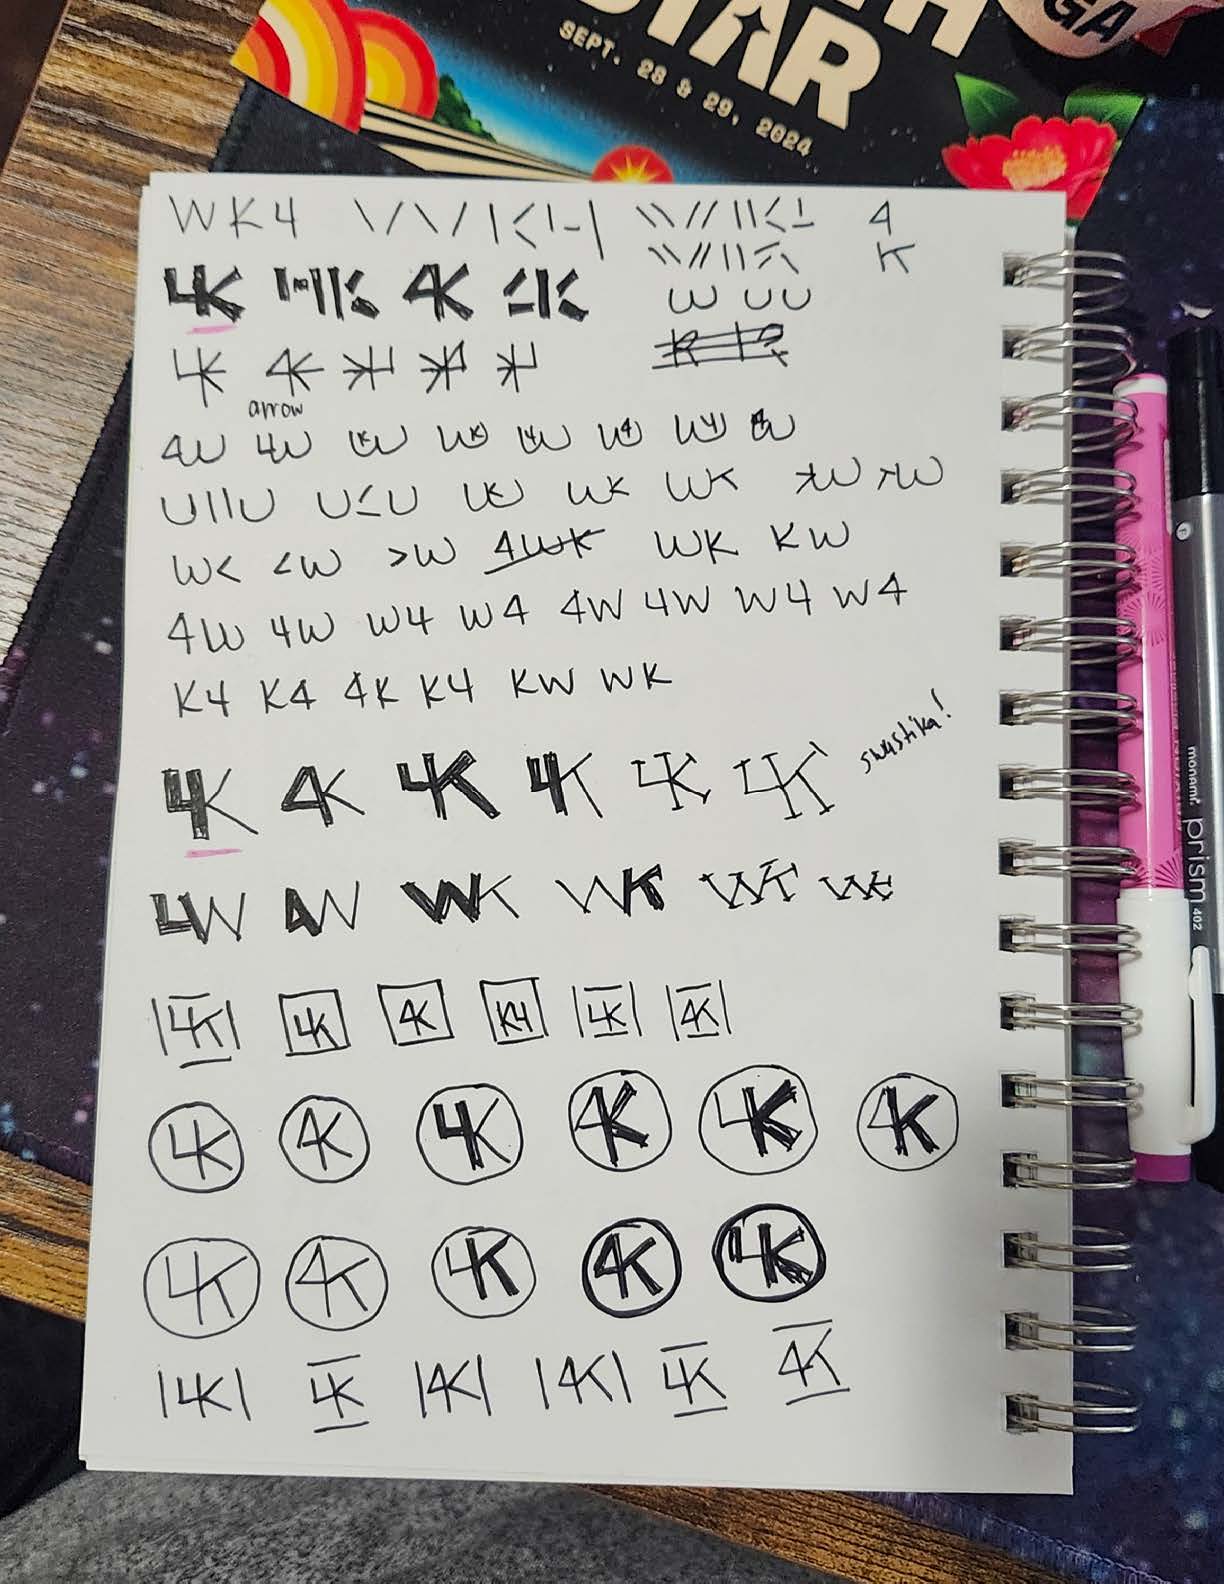 STAR
SEPT. 28 & 29, 2024
GA
WK4 4
K
4K 4K 4K
4K 4K
arrow
4W 4W KW WK 4W W4 W4 4W
WK WK WK
W< <W >W 4WK WK KW
4W 4W W4 W4 4W 4W W4 W4
K4 K4 4K K4 KW WK
4K 4K 4K 4K 4K 4K swastika!
4W 4W WK WK WK WK
4K 4K 4K K4 4K 4K
4K 4K 4K 4K 4K 4K
4K 4K 4K 4K 4K
4K 4K 4K 4K 4K 4K
monami prism 402